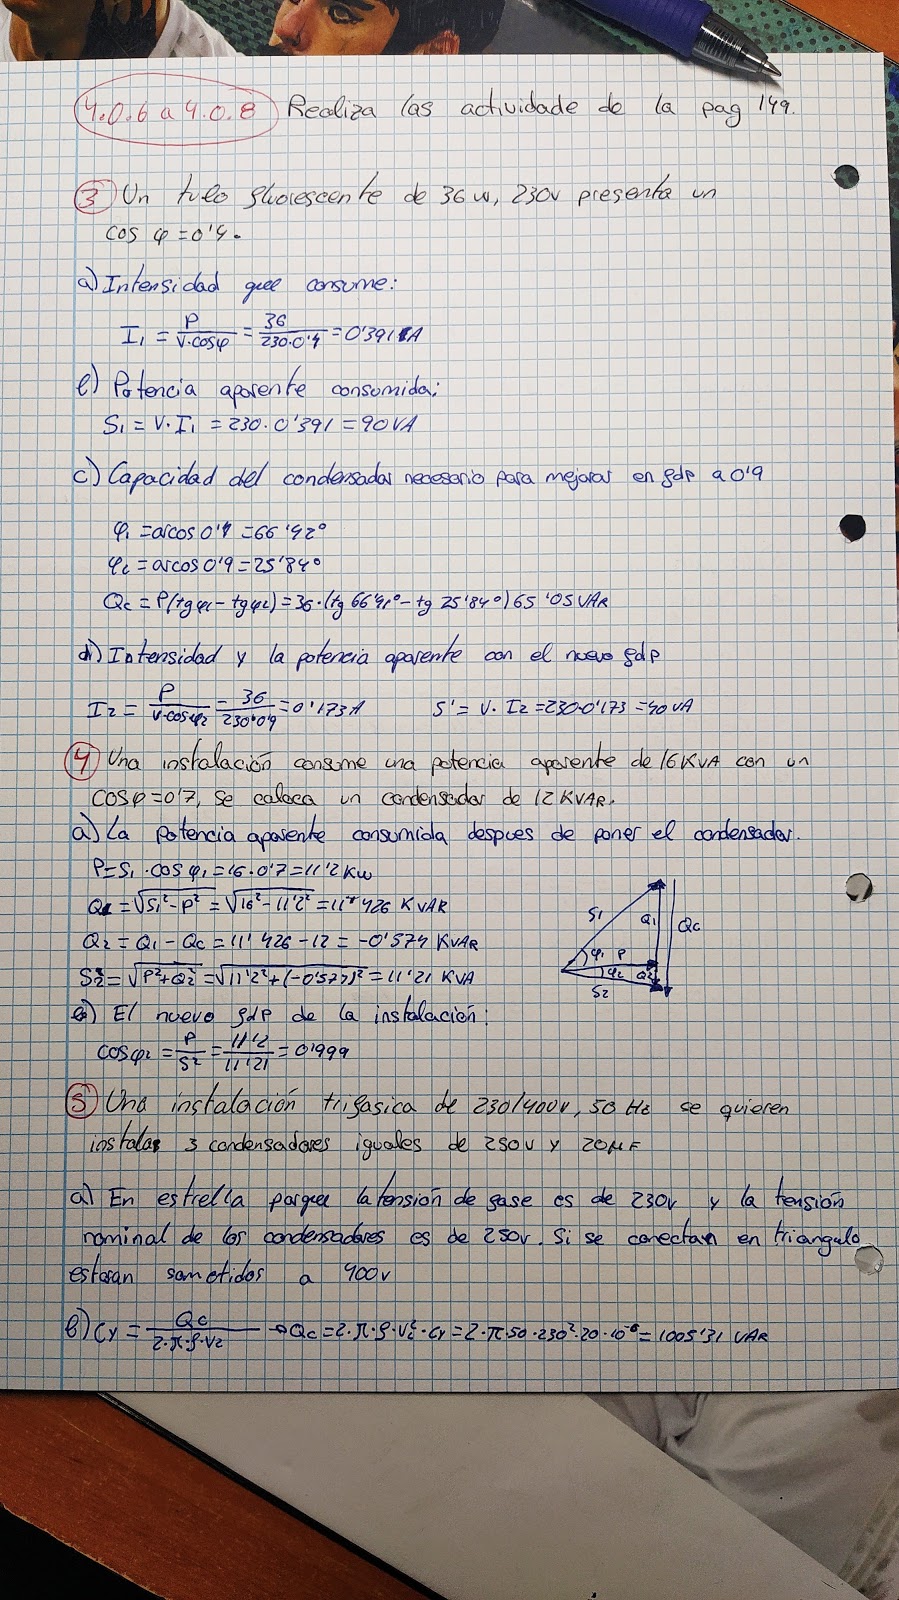 4.0.6 a 4.0.8 Realiza las actividade de la pag 149.
③ Un tubo fluorescente de 36w, 230v presenta un
cos φ = 0'4.
a) Intensidad que consume:
I₁ = P / V·cosφ = 36 / 230·0'4 = 0'391 A
b) Potencia aparente consumida:
S₁ = V·I₁ = 230·0'391 = 90 VA
c) Capacidad del condensador necesario para mejorar en fdp a 0'9
φ₁ = arcos 0'4 = 66'42°
φ₂ = arcos 0'9 = 25'84°
Qc = P(tgφ₁ - tgφ₂) = 36·(tg 66'41° - tg 25'84°) 65'05 VAR
d) Intensidad y la potencia aparente con el nuevo fdp
I₂ = P / V·cosφ₂ = 36 / 230·0'9 = 0'173A S' = V·I₂ = 230·0'173 = 40 VA
④ Una instalación consume una potencia aparente de 16 KVA con un
cosφ = 0'7, se coloca un condensador de 12 KVAR.
a) La potencia aparente consumida despues de poner el condensador.
P = S₁·cos φ₁ = 16·0'7 = 11'2 Kw
Q₁ = √S₁² - P² = √16² - 11'2² = 11'426 KVAR
Q₂ = Q₁ - Qc = 11'426 - 12 = -0'574 KVAR
S₂ = √P² + Q₂² = √11'2² + (-0'577)² = 11'21 KVA
S₁ Q₁ Qc
φ₁ P
φ₂ Q₂
S₂
b) El nuevo fdp de la instalación:
cosφ₂ = P / S₂ = 11'2 / 11'21 = 0'999
⑤ Una instalación trifasica de 230/400v, 50 Hz se quieren
instalar 3 condensadores iguales de 250v y 20µF
a) En estrella porque la tensión de fase es de 230v y la tensión
nominal de los condensadores es de 250v. Si se conectan en triangulo
estaran sometidos a 400v
b) Cy = Qc / 2·π·f·V² → Qc = 2·π·f·V²·Cy = 2·π·50·230²·20·10⁻⁶ = 1005'31 VAR